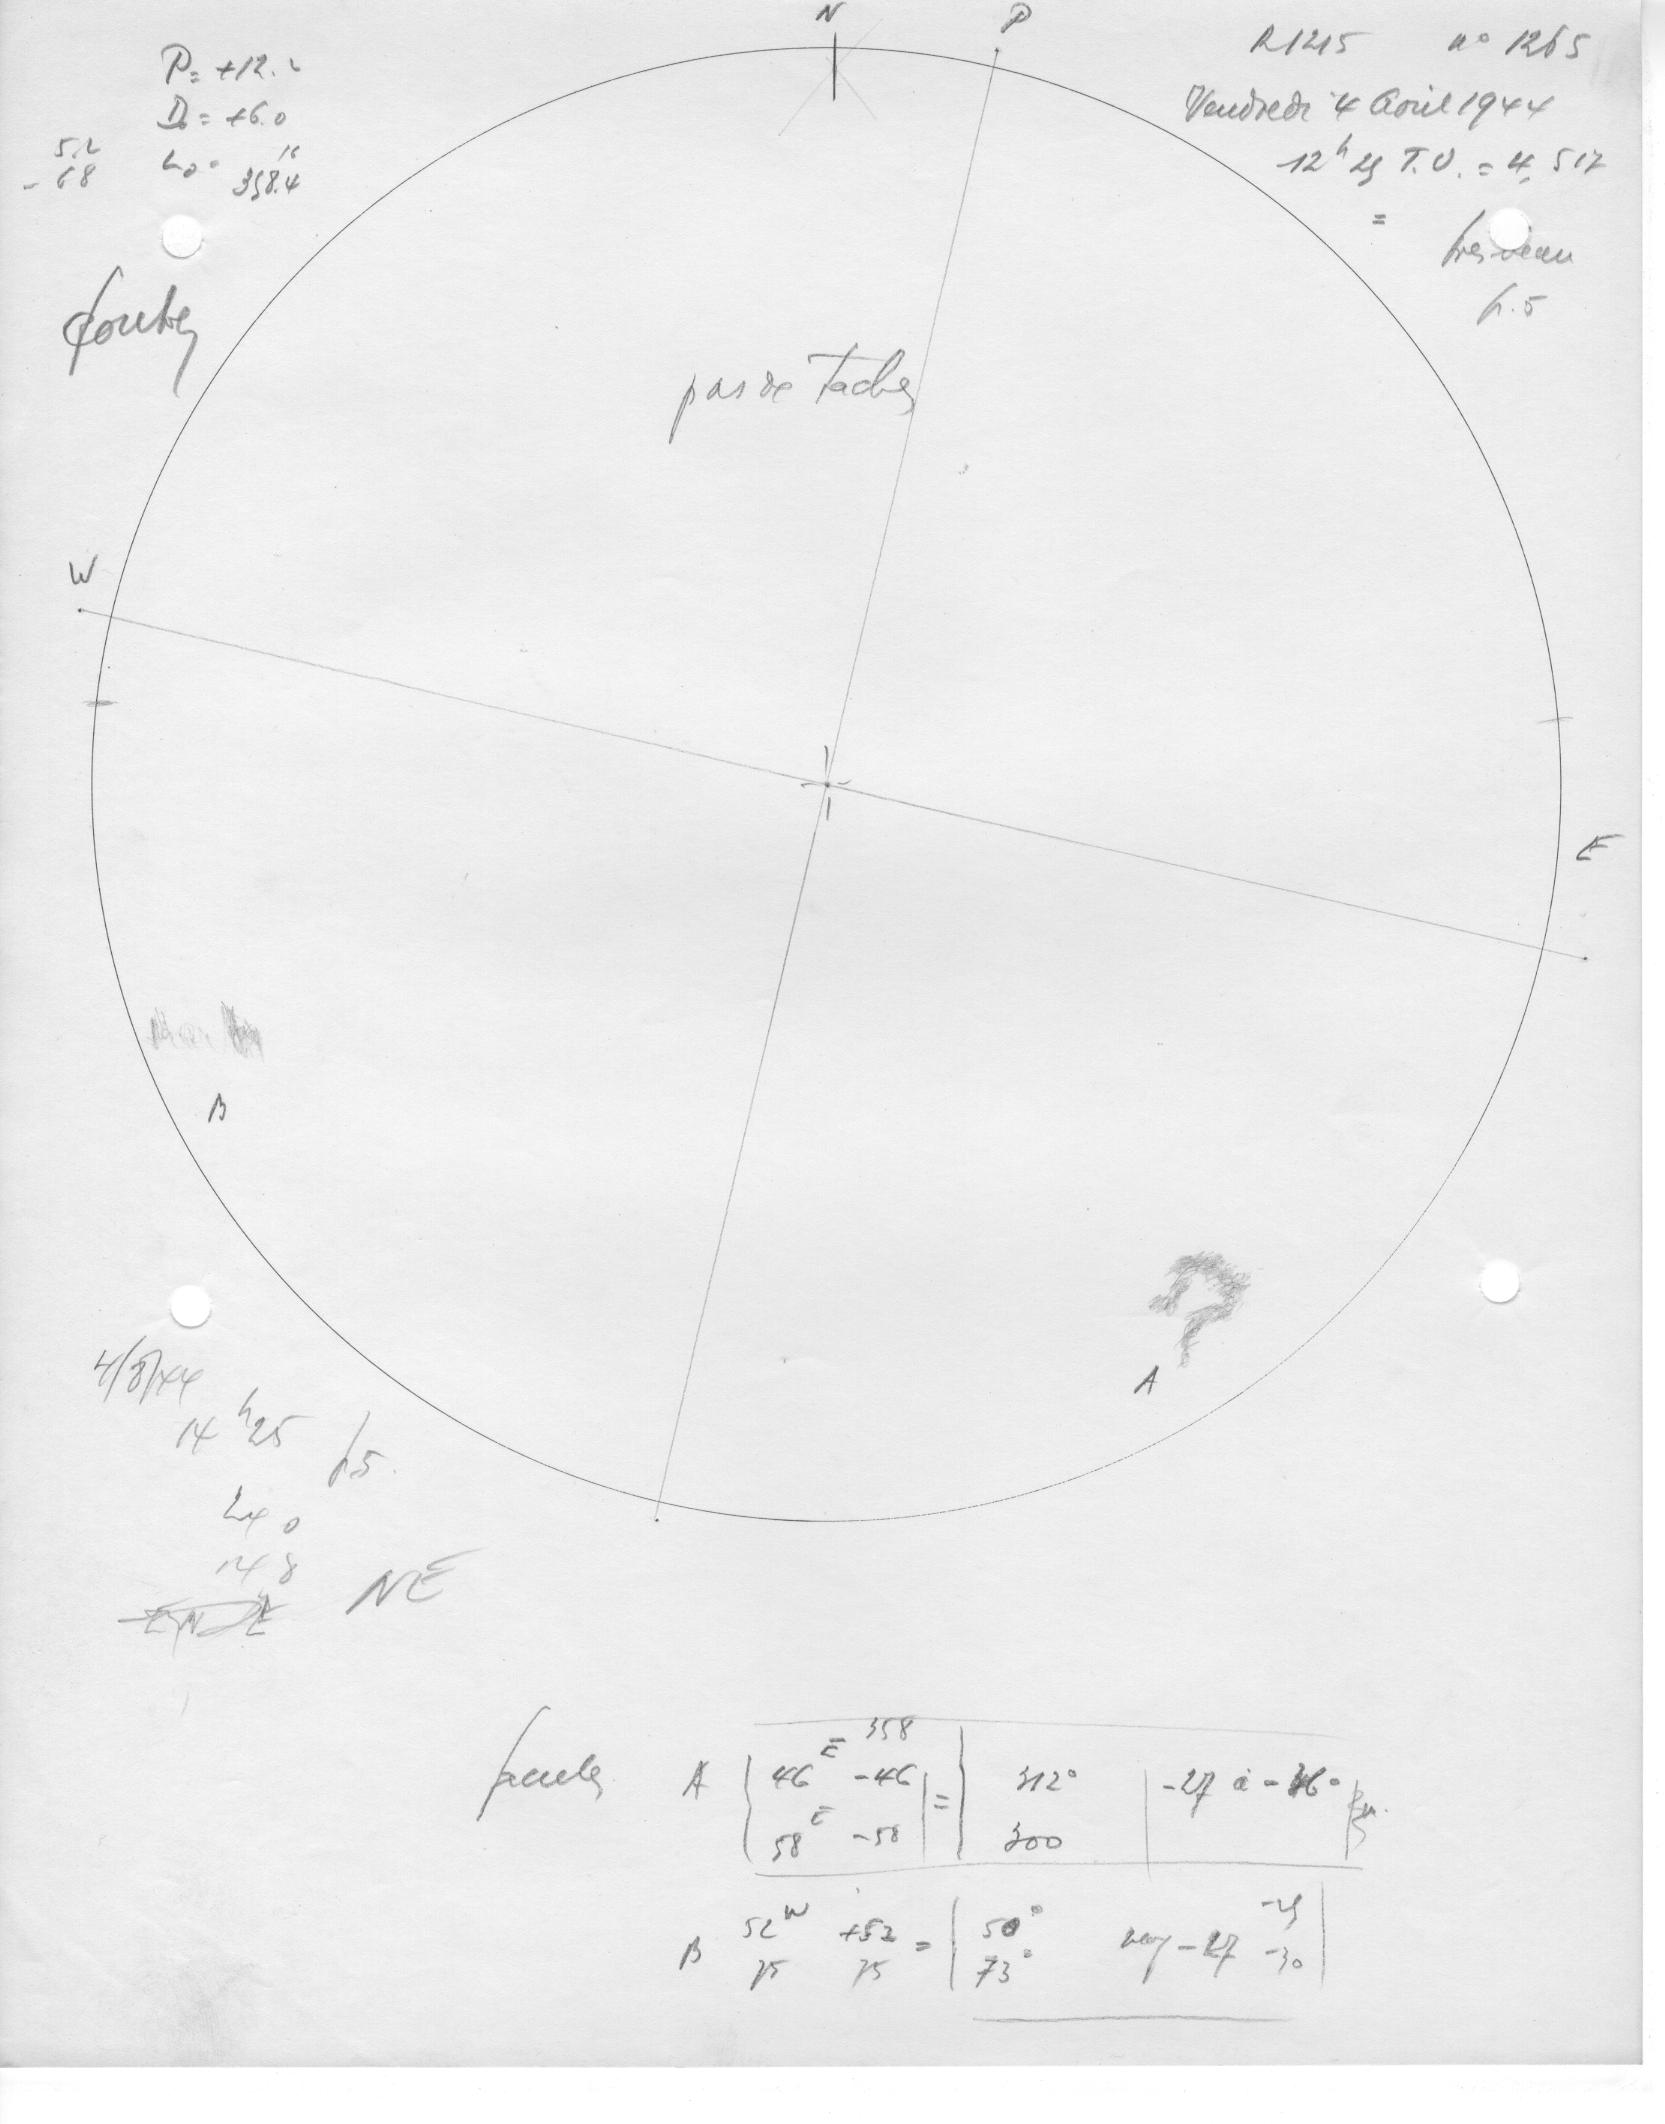 N P
R1215 n° 1265
P = +12.2
Vendredi 4 Aout 1944
D = +6.0
12 h 25 T.U. = 4,517
5.2
- 6 8
L0 =
358.4
=
tres beau
p. 5
pas de Taches
W
E
B
A
4/8/44
14 h 25 p 5.
240
148
NE
facules A
358
46 E - 46 = 312° -27 à -36°
58 E - 58 300
B 52 W +52 = 50° moy -27 -25
75 75 73° -30